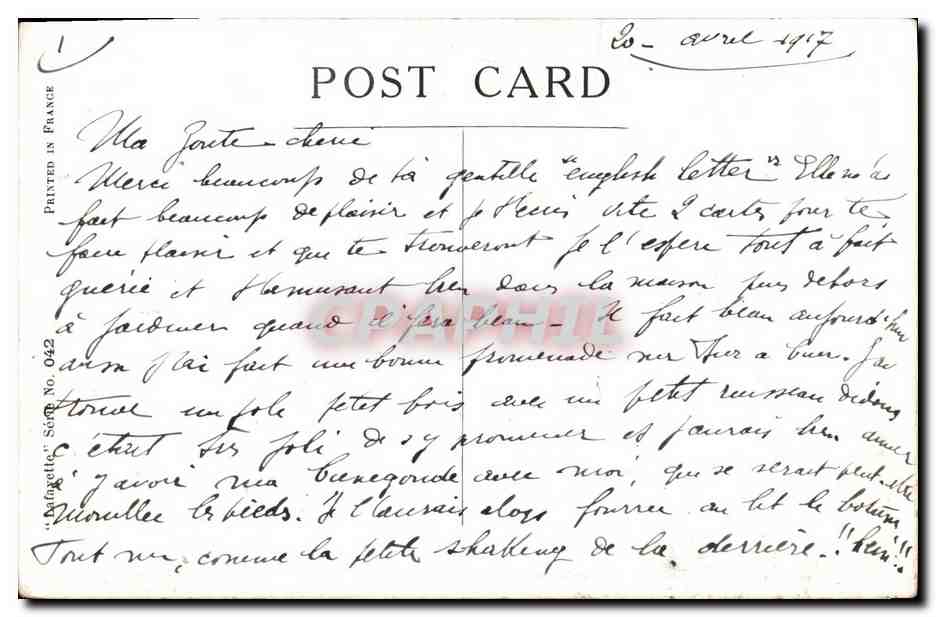 1
20 - avril 1917
POST CARD
Ma chérie
Merci beaucoup de ta gentille "english letter" Elle m'a
fait beaucoup de plaisir et je vite 2 cartes pour te
faire plaisir et que te trouveront je l'espère tout à fait
guérie et t'amusant bien dans la maison puis dehors
à jardiner quand il fera beau - Il fait beau aujourd'hui
aussi j'ai fait une bonne promenade sur . J'ai
trouvé un joli petit bois avec un petit ruisseau dedans
c'était très joli de s'y promener et j'aurais bien aimé
à y avoir ma avec moi, qui se serait peut-être
mouillée les pieds. Je l'aurais alors fourrée au lit le
Tout nu, comme la petite de la derrière!! hein!!
PRINTED IN FRANCE
"Lafayette" Série No. 042
CPAPHIL